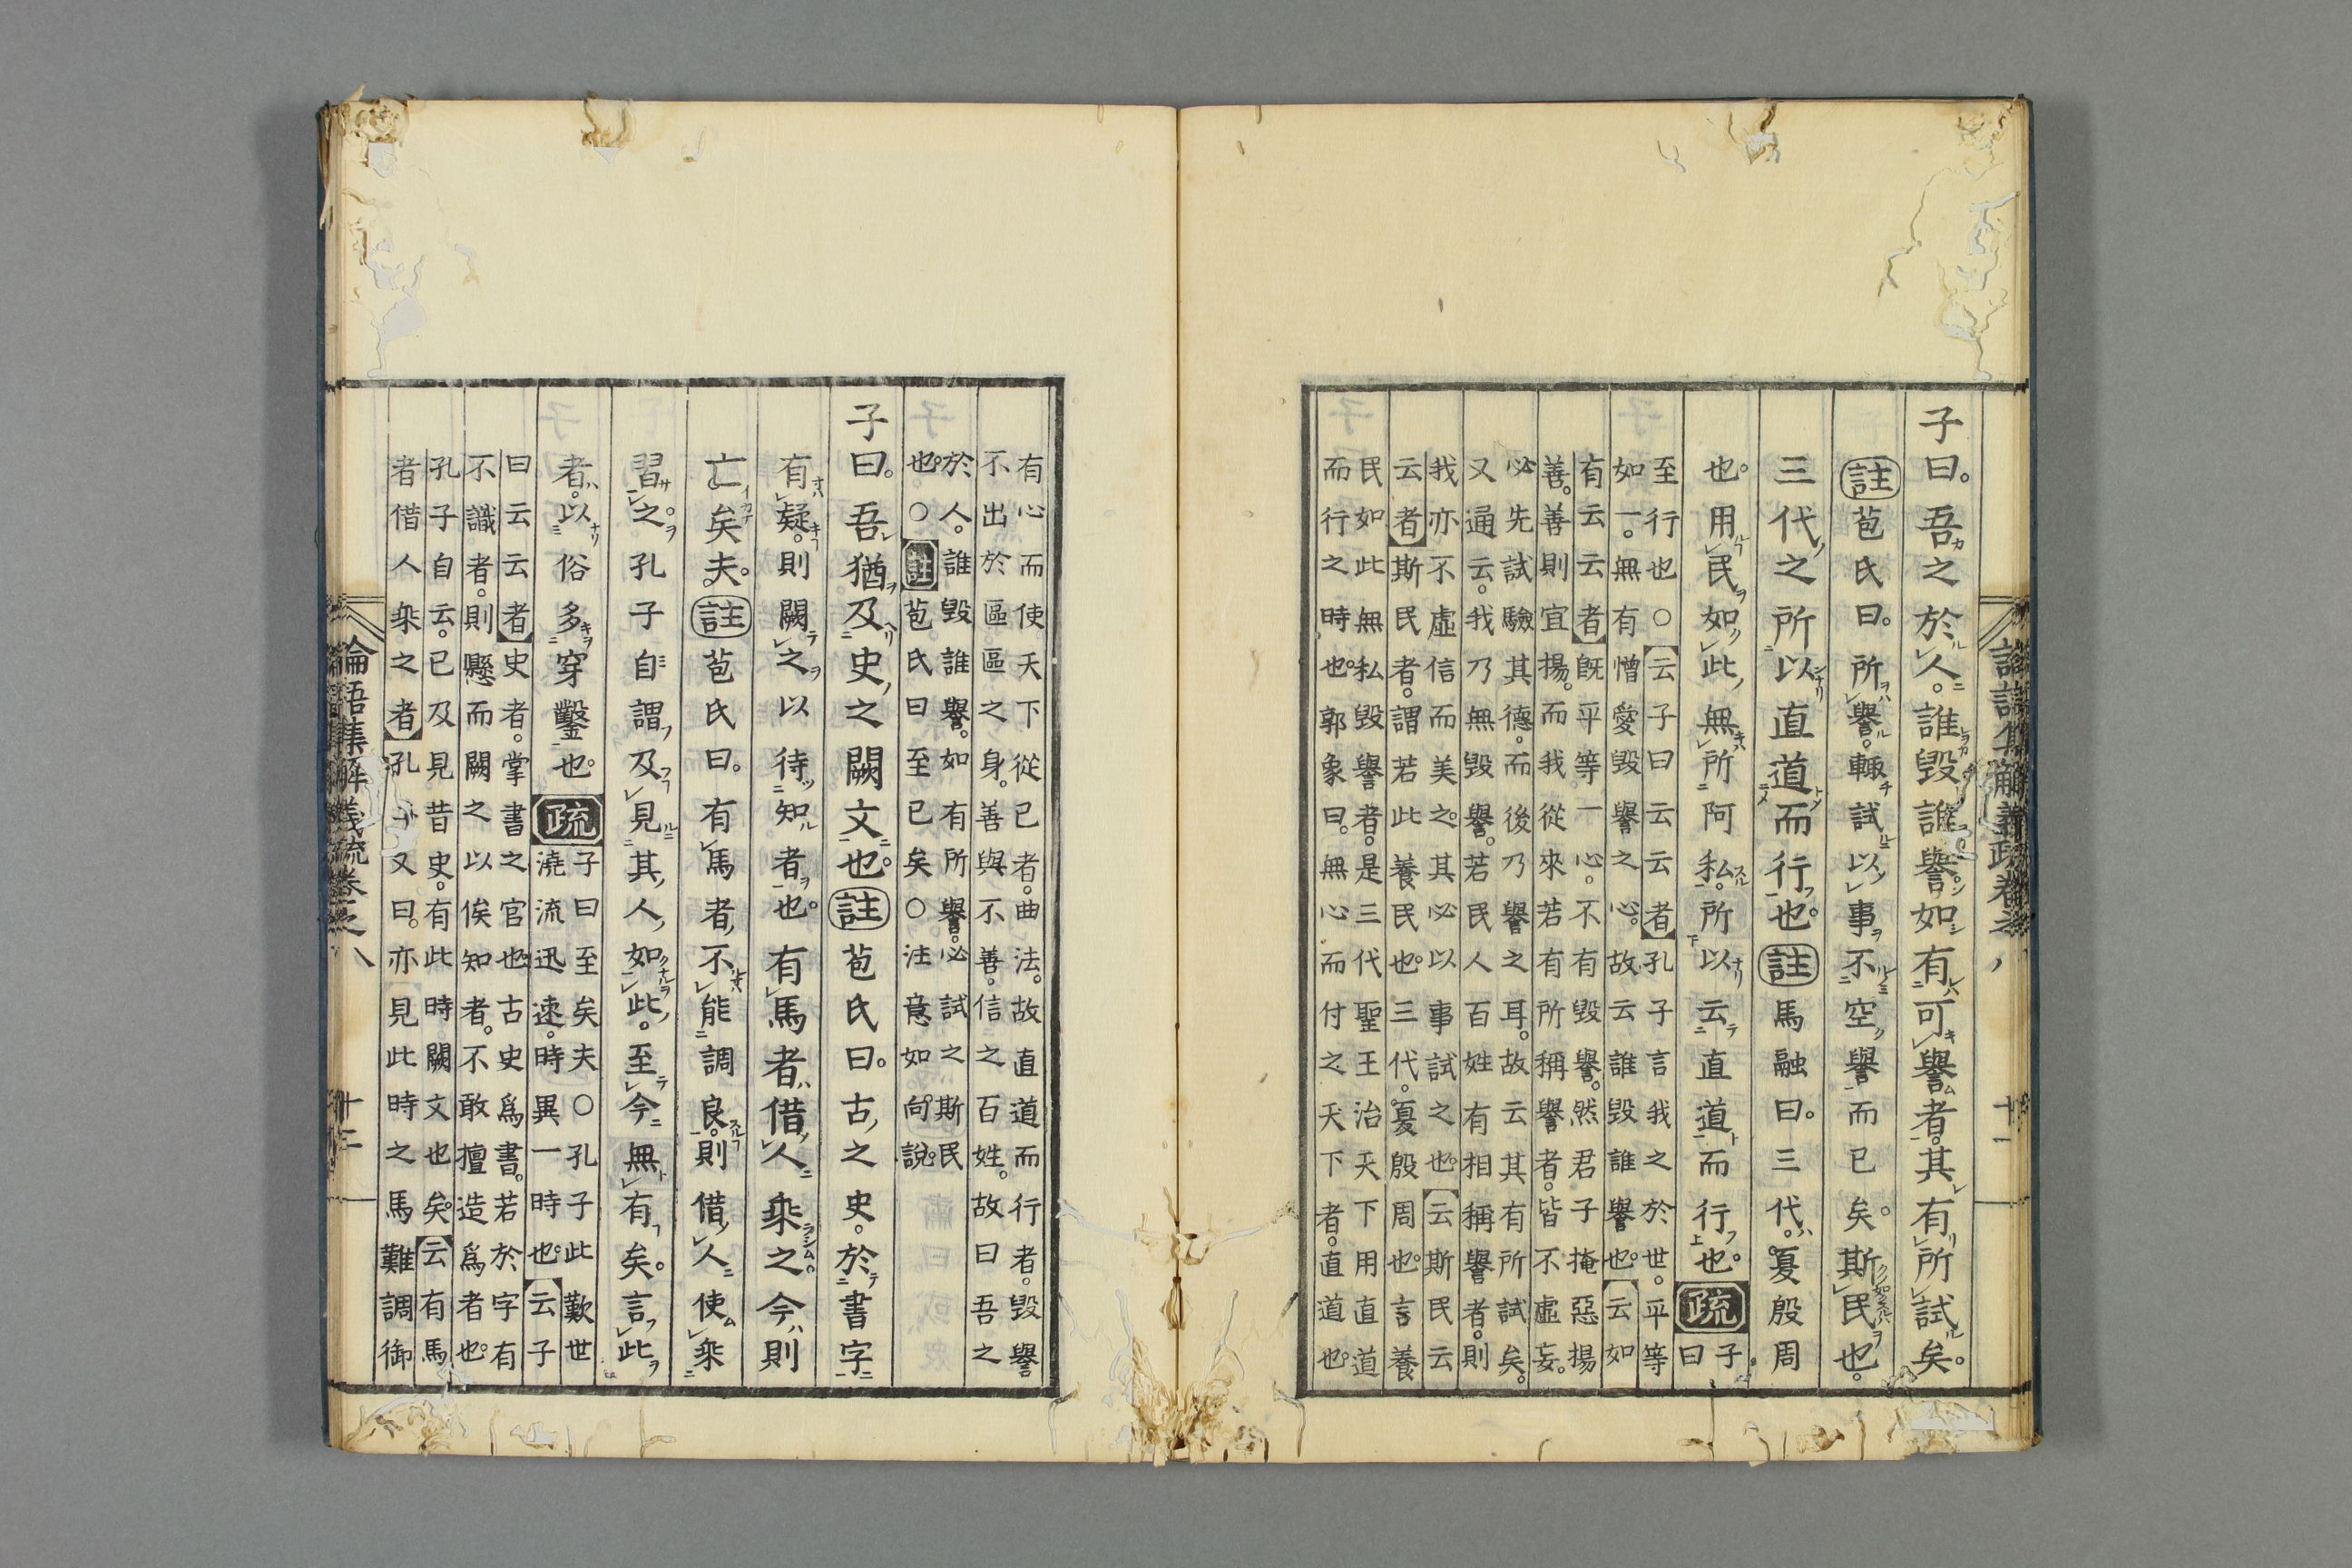 子曰。吾之於人。誰毀誰譽。如有可譽者。其有所試矣。
註苞氏曰。所譽。輙試以事不空譽而已矣。斯民也。
三代之所以直道而行也。註馬融曰。三代。夏殷周
也。用民如此無所阿私。所以云直道而行也。疏子
曰
至行也○云子曰云云者孔子言我之於世。平等
如一。無有憎愛毀譽之心。故云誰毀誰譽也。云如
有云云者既平等一心。不有毀譽。然君子掩惡揚
善。善則宜揚。而我從來若有所稱譽者。皆不虛妄。
必先試驗其德。而後乃譽之耳。故云其有所試矣。
又通云。我乃無毀譽。若民人百姓有相稱譽者。則
我亦不虛信而美之。其必以事試之也。云斯民云
云者斯民者。謂若此養民也。三代。夏殷周也。言養
民如此無私毀譽者。是三代聖王治天下用直道
而行之時也。郭象曰。無心而付之天下者。直道也。
有心而使天下從己者。曲法。故直道而行者。毀譽
不出於區區之身。善與不善。信之百姓。故曰吾之
於人。誰毀誰譽。如有所譽。必試之斯民
也。○註苞氏曰至已矣○注意如向說。
子曰。吾猶及史之闕文也。註苞氏曰。古之史。於書字
有疑。則闕之以待知者也。有馬者借人乘之今則
亡矣夫。註苞氏曰。有馬者不能調良。則借人使乘
習之。孔子自謂及見其人如此。至今無有矣。言此
者。以俗多穿鑿也。疏子曰至矣夫○孔子此歎世
澆流迅速。時異一時也。云子
曰云云者史者。掌書之官也。古史爲書。若於字有
不識者。則懸而闕之以俟知者。不敢擅造爲者也。
孔子自云。己及見昔史。有此時闕文也矣。云有馬
者借人乘之者孔子又曰。亦見此時之馬難調御
論語集解義疏卷之八
十一
論語集解義疏卷之八
十二